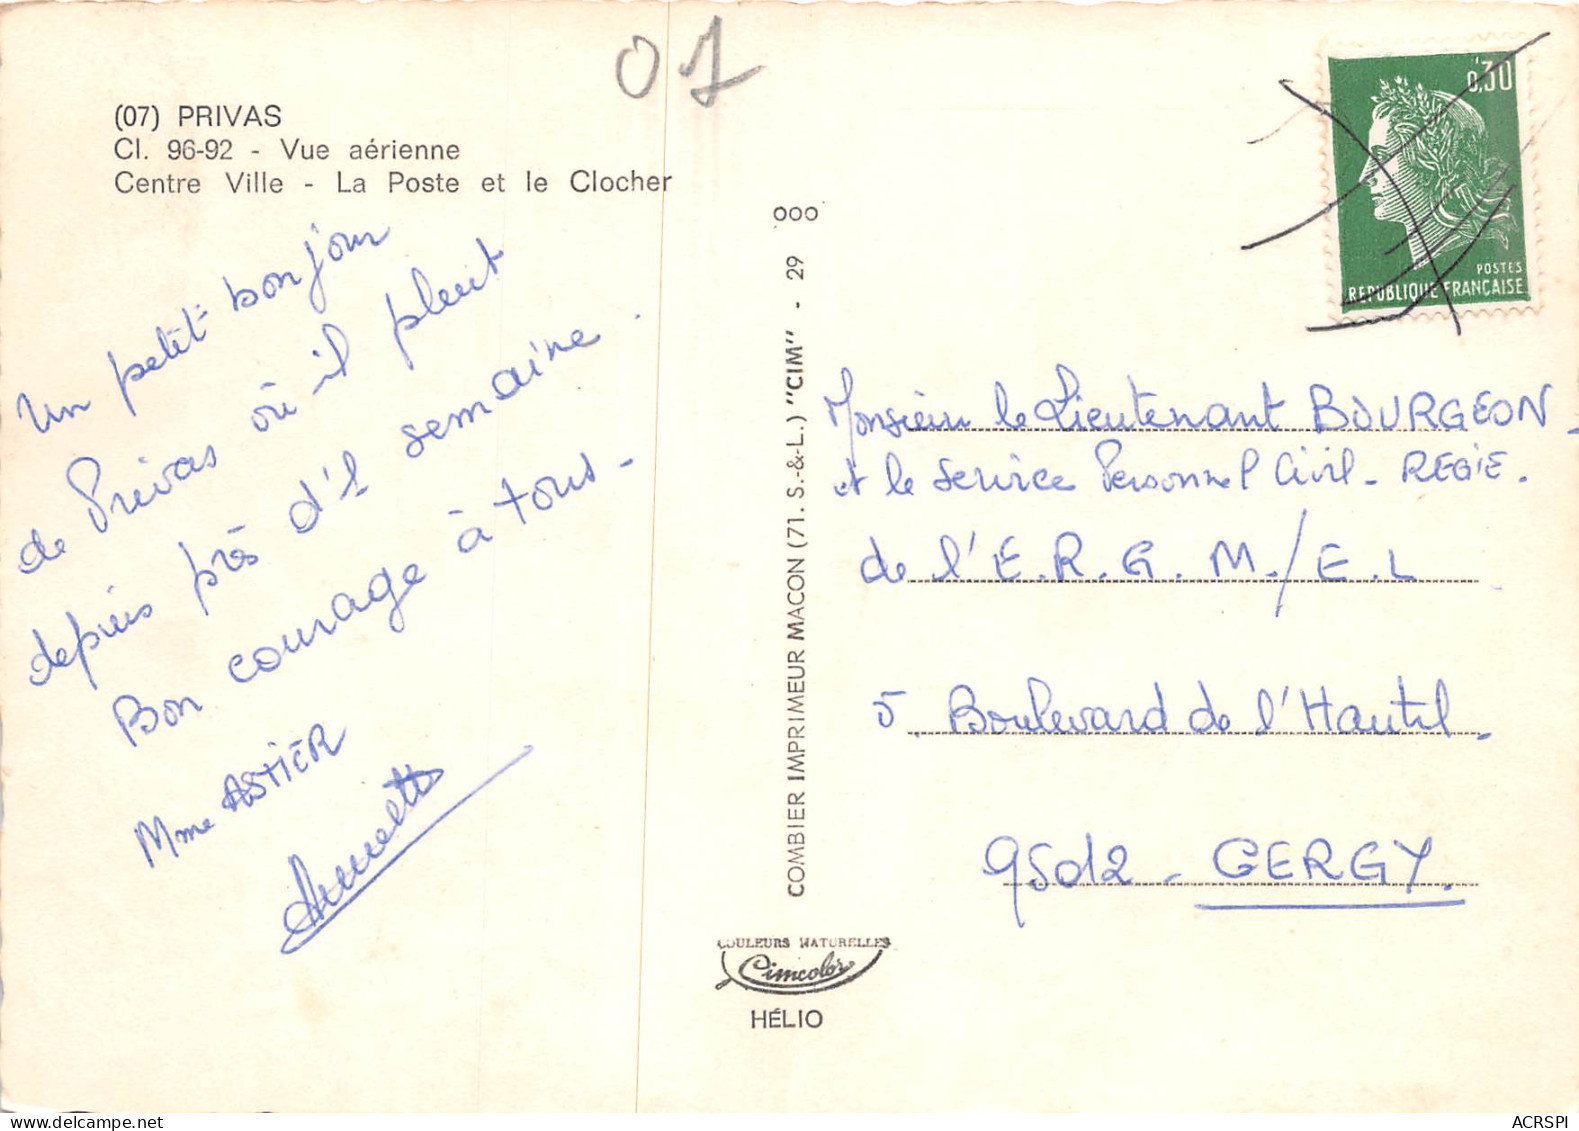 07
(07) PRIVAS
Cl. 96-92 - Vue aérienne
Centre Ville - La Poste et le Clocher
Un petit bonjour
de Privas où il pleut
depuis près d'1 semaine.
Bon courage à tous -
Mme ASTIER
Annette
COMBIER IMPRIMEUR MACON (71. S.-&-L.) "CIM" - 29 000
COULEURS NATURELLES
Cimcolor
HÉLIO
0,30
POSTES
REPUBLIQUE FRANÇAISE
Monsieur le Lieutenant BOURGEON -
et le Service Personnel Civil - REGIE.
de l'E.R.G.M./E.L
5. Boulevard de l'Hautil -
95012 - CERGY.
delcampe.net
ACRSPI